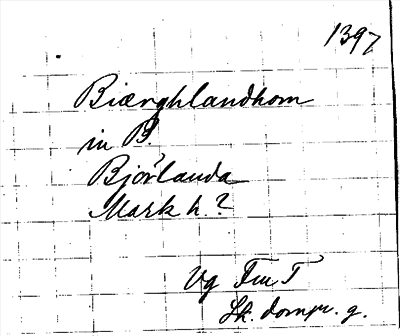 1397
Biærghlandhom
in B.
Björlanda
Mark h.?
Vg Fru T
Sk. dompr. g.